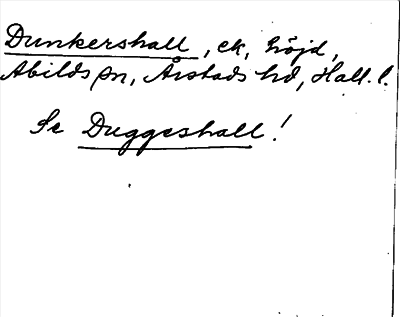 Dunkershall, ek, höjd,
Abilds sn, Årstads hd, Hall. l.
Se Duggeshall!